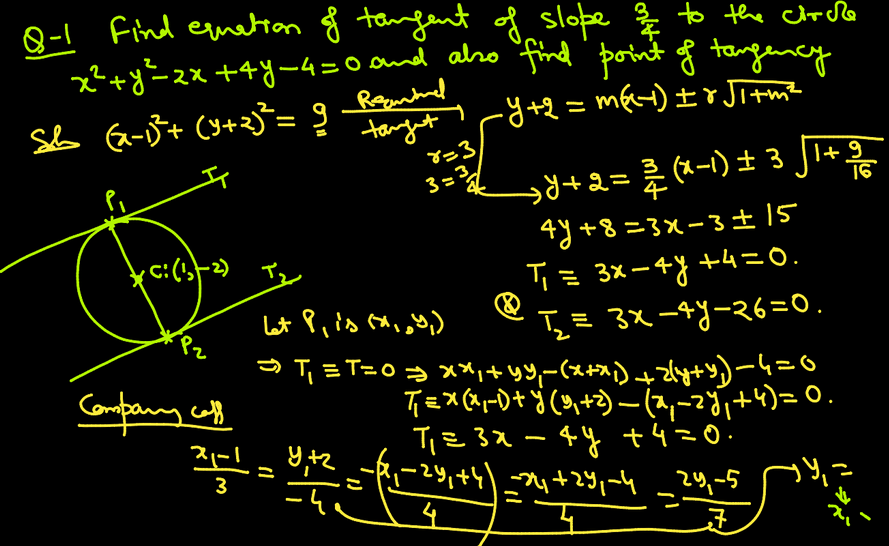 Q-1 Find equation of tangent of slope 3/4 to the circle
x²+y²-2x+4y-4=0 and also find point of tangency
Sol (x-1)²+(y+2)²=9 Required tangent y+2=m(x-1)±r√1+m²
r=3
3=3/4
y+2=3/4(x-1)±3√1+9/16
4y+8=3x-3±15
T₁≡3x-4y+4=0.
& T₂≡3x-4y-26=0.
P₁
T₁
C:(1,-2)
T₂
P₂
Let P₁ is (x₁,y₁)
⇒ T₁≡T=0 ⇒ xx₁+yy₁-(x+x₁)+2(y+y₁)-4=0
T₁≡x(x₁-1)+y(y₁+2)-(x₁-2y₁+4)=0.
T₁≡3x-4y+4=0.
Comparing coff
x₁-1/3=y₁+2/-4=-(x₁-2y₁+4/4)=-x₁+2y₁-4/4=2y₁-5/7 → y₁=
↓
x₁